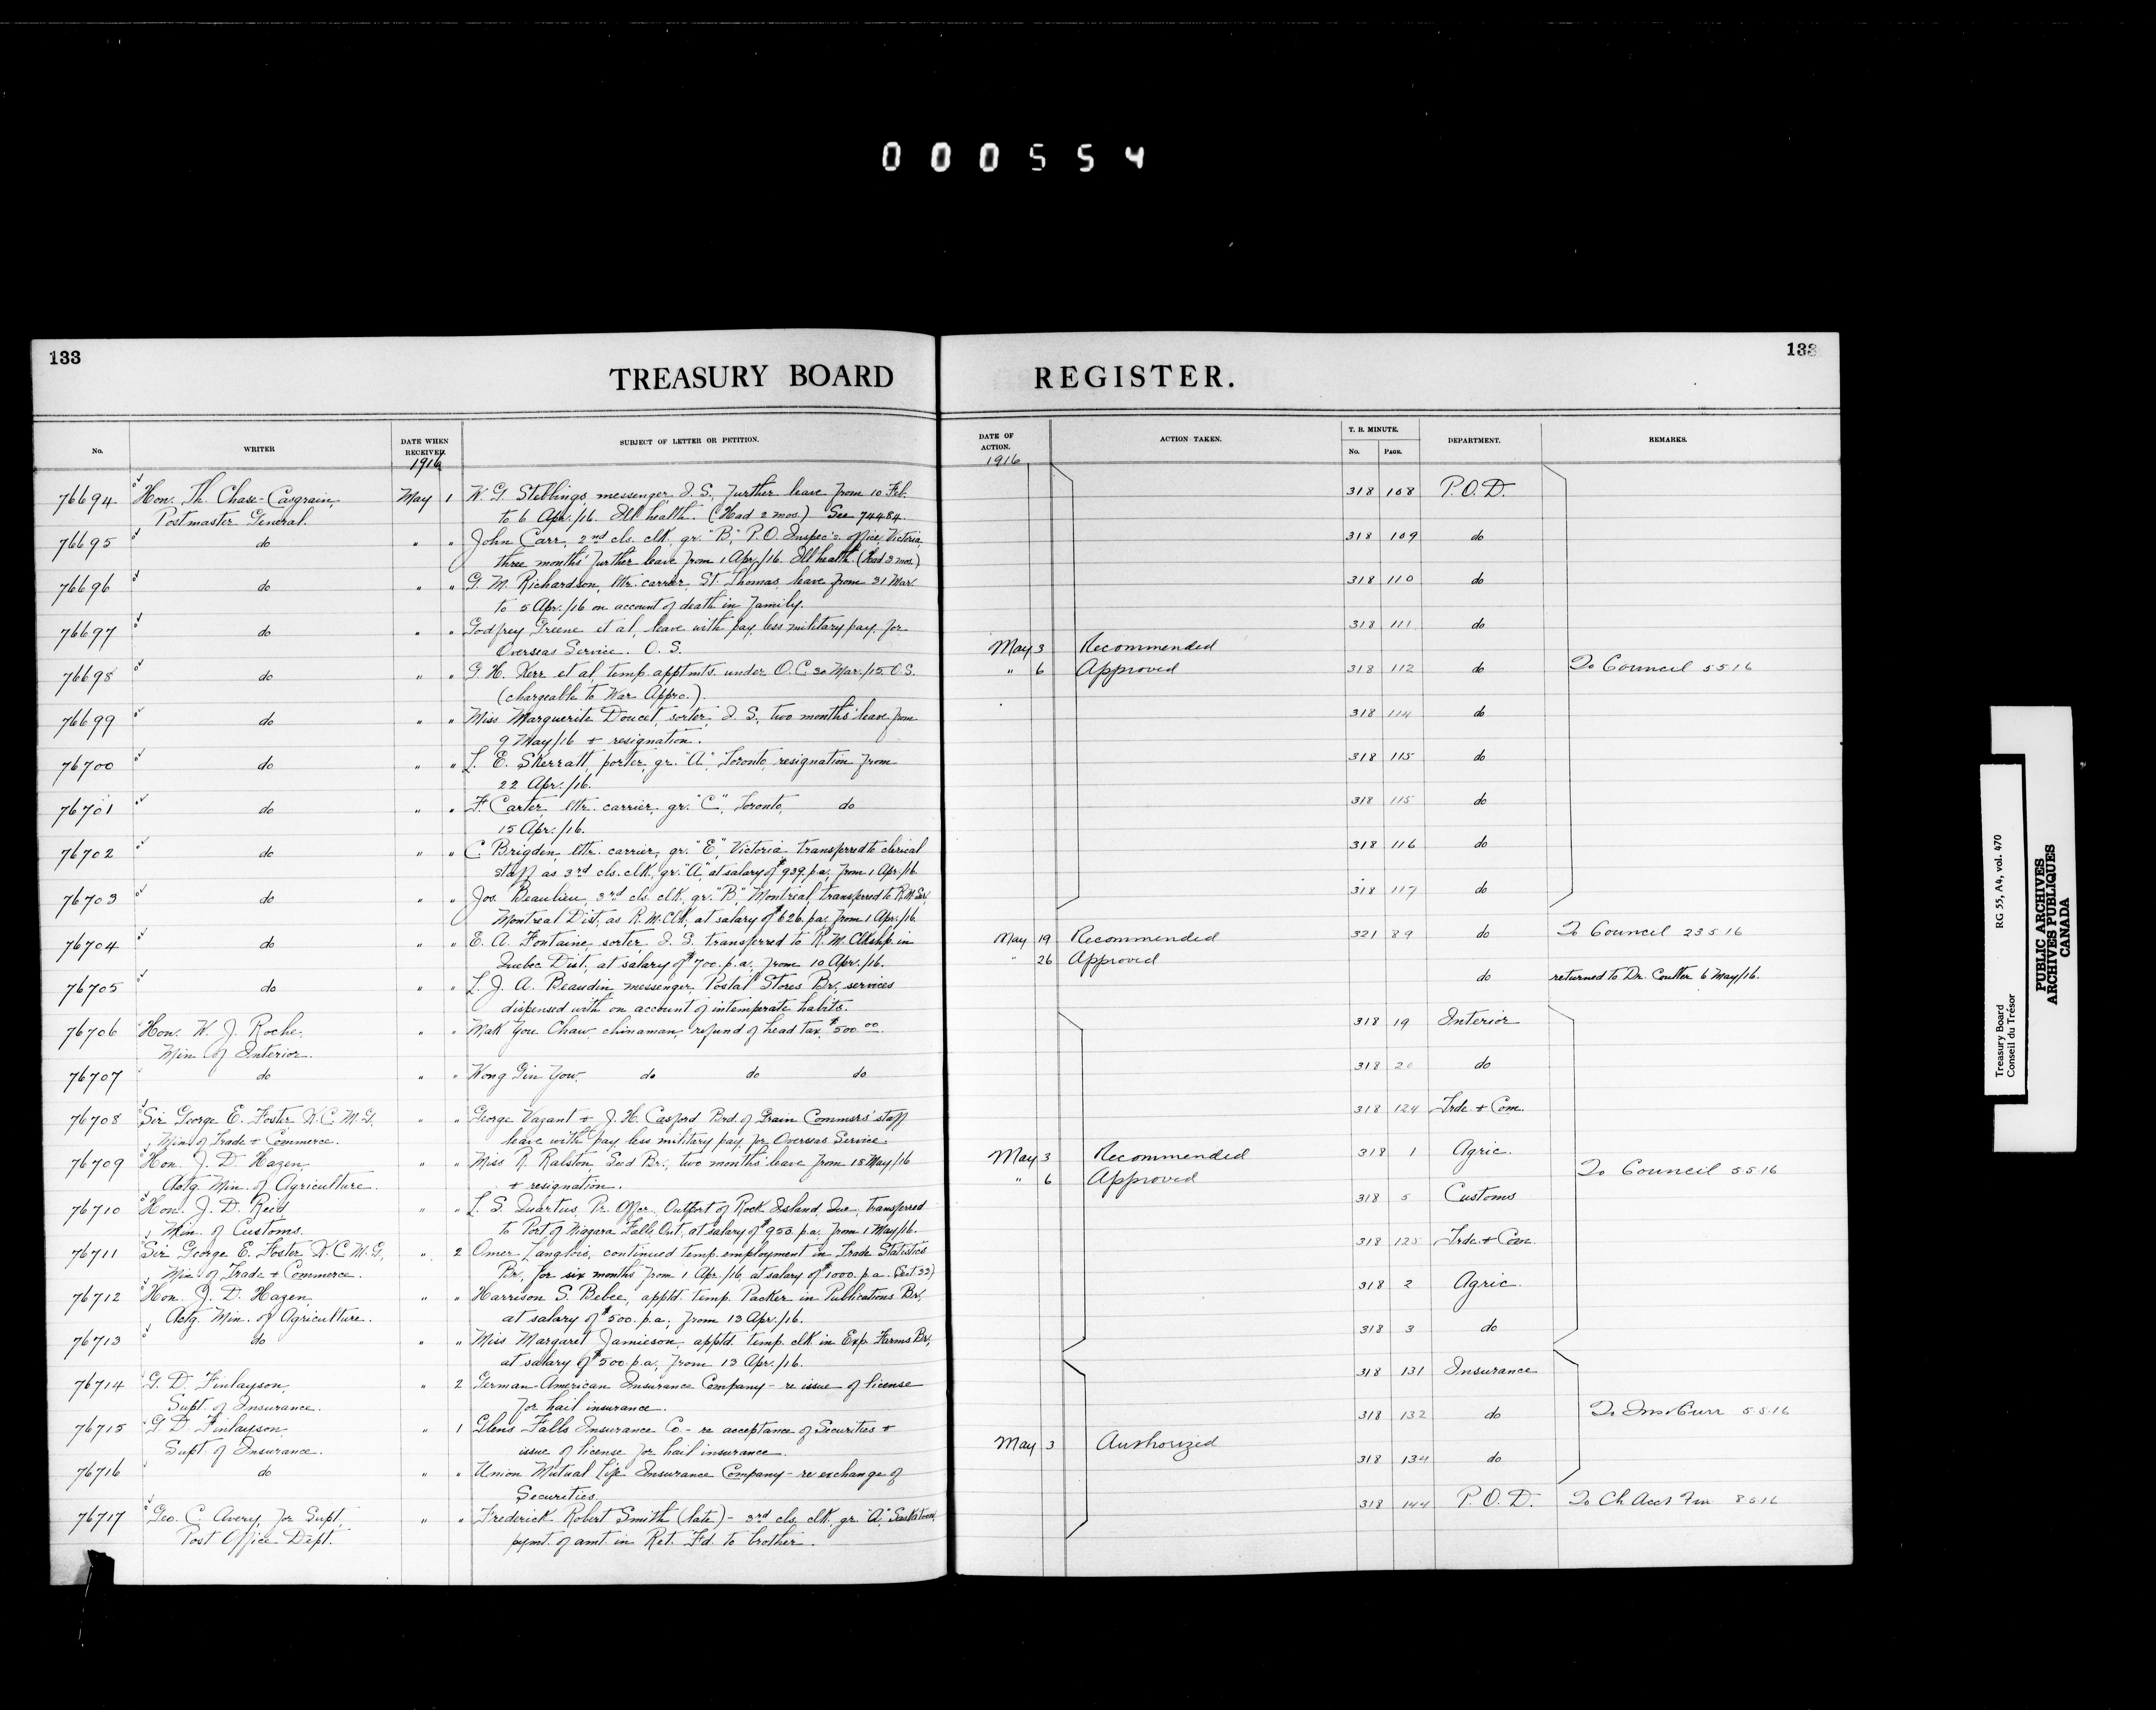 000554
133
TREASURY BOARD REGISTER.
133
No. WRITER DATE WHEN RECEIVED. SUBJECT OF LETTER OR PETITION. DATE OF ACTION. ACTION TAKEN. T. B. MINUTE. No. PAGE. DEPARTMENT. REMARKS.
1916 1916
76694 Hon. Th. Chase-Casgrain, May 1 W. G. Stebbings, messenger, I. S., further leave from 10 Feb. 318 108 P.O.D.
Postmaster General. to 6 Apr./16. Ill health. (Had 2 mos.) See 74484.
76695 do " " John Carr, 2nd cls. clk, gr. "B", P.O. Inspec's office, Victoria, 318 109 do
three months' further leave from 1 Apr./16. Ill health. (Had 3 mos.)
76696 do " " G. M. Richardson, ltr. carrier, St. Thomas, leave from 31 Mar. 318 110 do
to 5 Apr./16 on account of death in family.
76697 do " " Godfrey Greene et al, leave with pay, less military pay, for 318 111 do
Overseas Service. O. S. May 3 Recommended
76698 do " " G. H. Kerr et al, temp. apptmts. under O.C. 30 Mar./15. O.S. " 6 Approved 318 112 do To Council 5 5 16
(chargeable to War Appro.)
76699 do " " Miss Marguerite Doucet, sorter, I. S., two months' leave from 318 114 do
9 May/16 + resignation.
76700 do " " L. E. Skerratt, porter, gr. "A", Toronto, resignation from 318 115 do
22 Apr./16.
76701 do " " F. Carter, ltr. carrier, gr. "C", Toronto, do 318 115 do
15 Apr./16.
76702 do " " C. Brigden, ltr. carrier, gr. "E", Victoria transferred to clerical 318 116 do
staff as 3rd cls. clk., gr. "A", at salary of $939. p.a., from 1 Apr./16.
76703 do " " Jos. Beaulieu, 3rd cls. clk., gr. "B", Montreal, transferred to R.M. Ser., 318 117 do
Montreal Dist. as R.M. Clk, at salary of $626. p.a. from 1 Apr./16.
76704 do " " E. A. Fontaine, sorter, I. S. transferred to R.M. Clkshp. in May 19 Recommended 321 89 do To Council 23 5 16
Quebec Dist., at salary of $700. p.a., from 10 Apr./16. " 26 Approved
76705 do " " L. J. A. Beaudin, messenger, Postal Stores Br., services do returned to Dr. Coulter 6 May/16.
dispensed with on account of intemperate habits.
76706 Hon. W. J. Roche, " " Mak You Chaw, chinaman, refund of head tax, $500.00. 318 19 Interior
Min. of Interior.
76707 do " " Wong Gin You, do do do 318 20 do
76708 Sir George E. Foster, K.C.M.G. " " George Vazant + J. H. Casford Brd. of Grain Commsrs' staff 318 124 Trde. + Com.
Min. of Trade + Commerce. leave with pay less military pay, for Overseas Service.
76709 Hon. J. D. Hazen, " " Miss R. Ralston, Seed Br., two months' leave from 15 May/16 May 3 Recommended 318 1 Agric.
Actg. Min. of Agriculture. + resignation. " 6 Approved To Council 5 5 16
76710 Hon. J. D. Reid, " " L. S. Quartus, Pr. Offcr. Outport of Rock Island, Que., transferred 318 5 Customs
Min. of Customs. to Port of Niagara Falls, Ont., at salary of $950. p.a. from 1 May/16.
76711 Sir George E. Foster K.C.M.G. " 2 Omer Langlois, continued temp. employment in Trade Statistics 318 125 Trde. + Com.
Min. of Trade + Commerce. Br., for six months from 1 Apr./16, at salary of $1000. p.a. (Sect 33)
76712 Hon. J. D. Hazen, " " Harrison S. Bebee, apptd. temp. Packer in Publications Br., 318 2 Agric.
Actg. Min. of Agriculture. at salary of $500. p.a., from 13 Apr./16.
76713 do " " Miss Margaret Jamieson, apptd. temp. clk in Exp. Farms Br., 318 3 do
at salary of $500. p.a., from 13 Apr./16.
76714 G. D. Finlayson, " 2 German-American Insurance Company - re issue of license 318 131 Insurance
Supt. of Insurance. for hail insurance.
76715 G. D. Finlayson, " 1 Glens Falls Insurance Co. - re acceptance of Securities + 318 132 do To Ins Curr 5 5 16
Supt. of Insurance. issue of license for hail insurance. May 3 Authorized
76716 do " " Union Mutual Life Insurance Company - re exchange of 318 134 do
Securities.
76717 Geo. C. Avery, for Supt., " " Frederick Robert Smith (late) - 3rd cls. clk. gr. "A", Saskatoon, 318 144 P.O.D. To Ch Acct Fin 8 5 16
Post Office Dept. pymt. of amt. in Ret. Fd. to brother.
Treasury Board RG 55, A4, vol. 470
Conseil du Trésor
PUBLIC ARCHIVES
ARCHIVES PUBLIQUES
CANADA